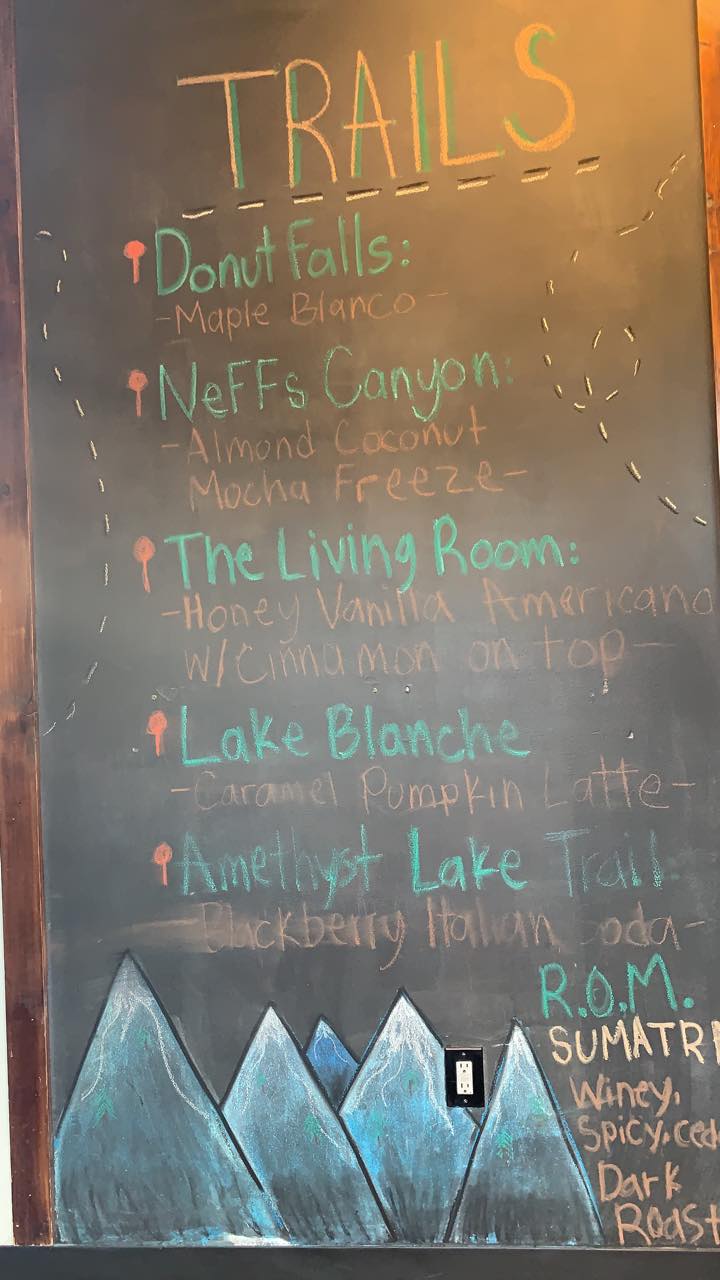 TRAILS
Donut Falls:
-Maple Blanco-
Neffs Canyon:
-Almond Coconut
Mocha Freeze-
The Living Room:
-Honey Vanilla Americano
w/Cinnamon on top-
Lake Blanche
-Caramel Pumpkin Latte-
Amethyst Lake Trail
-Blackberry Italian Soda-
R.O.M.
SUMATR
Winey,
Spicy, ced
Dark
Roast